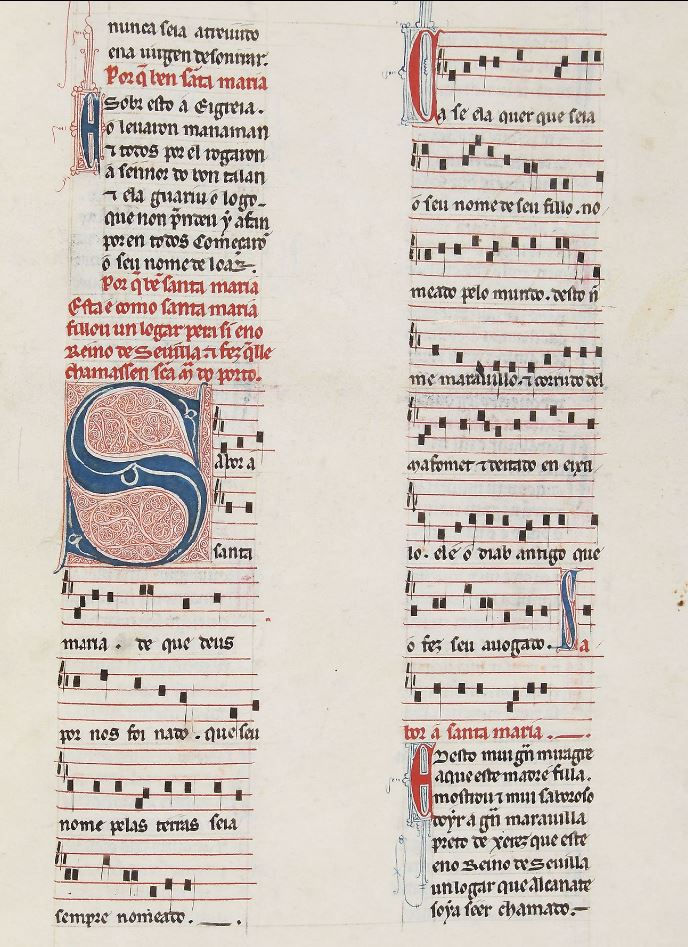 nunca seia atreuudo
ena uirgen desonrrar.
Por q̃ ben sãta maria
Sobr esto á Eigreia.
o leuaron manaman
⁊ todos por el rogaron
a sennor do bon talan
⁊ ela guariu o logo
que non p̃ndeu ý afan
por en todos Começarõ
o seu nome de loar.
Por q̃ bẽ santa maria
Esta é como santa maria
fillou un logar pera si eno
Reino de Seuilla ⁊ fez q̃ lle
chamassen sc̃a m̃ do porto.
Sabor á
santa
maria. de que deus
por nos foi nado. que seu
nome pelas terras seia
sempre nomeado.
Ca se ela quer que seia
o seu nome de seu fillo. no
meado pelo mundo. desto nõ
me marauillo. ⁊ corrudo del
mafomet ⁊ deitado en eixi
lo. ele o diab antigo que
o fez seu auogado. Sa
bor á santa maria.
E Desto mui gñ miragre
a que este madre e filla.
mostrou ⁊ mui saboroso
doyr a gñ marauilla
preto de xerez que este
eno Reino de Seuilla
un logar que Alcanate
soya seer chamado.